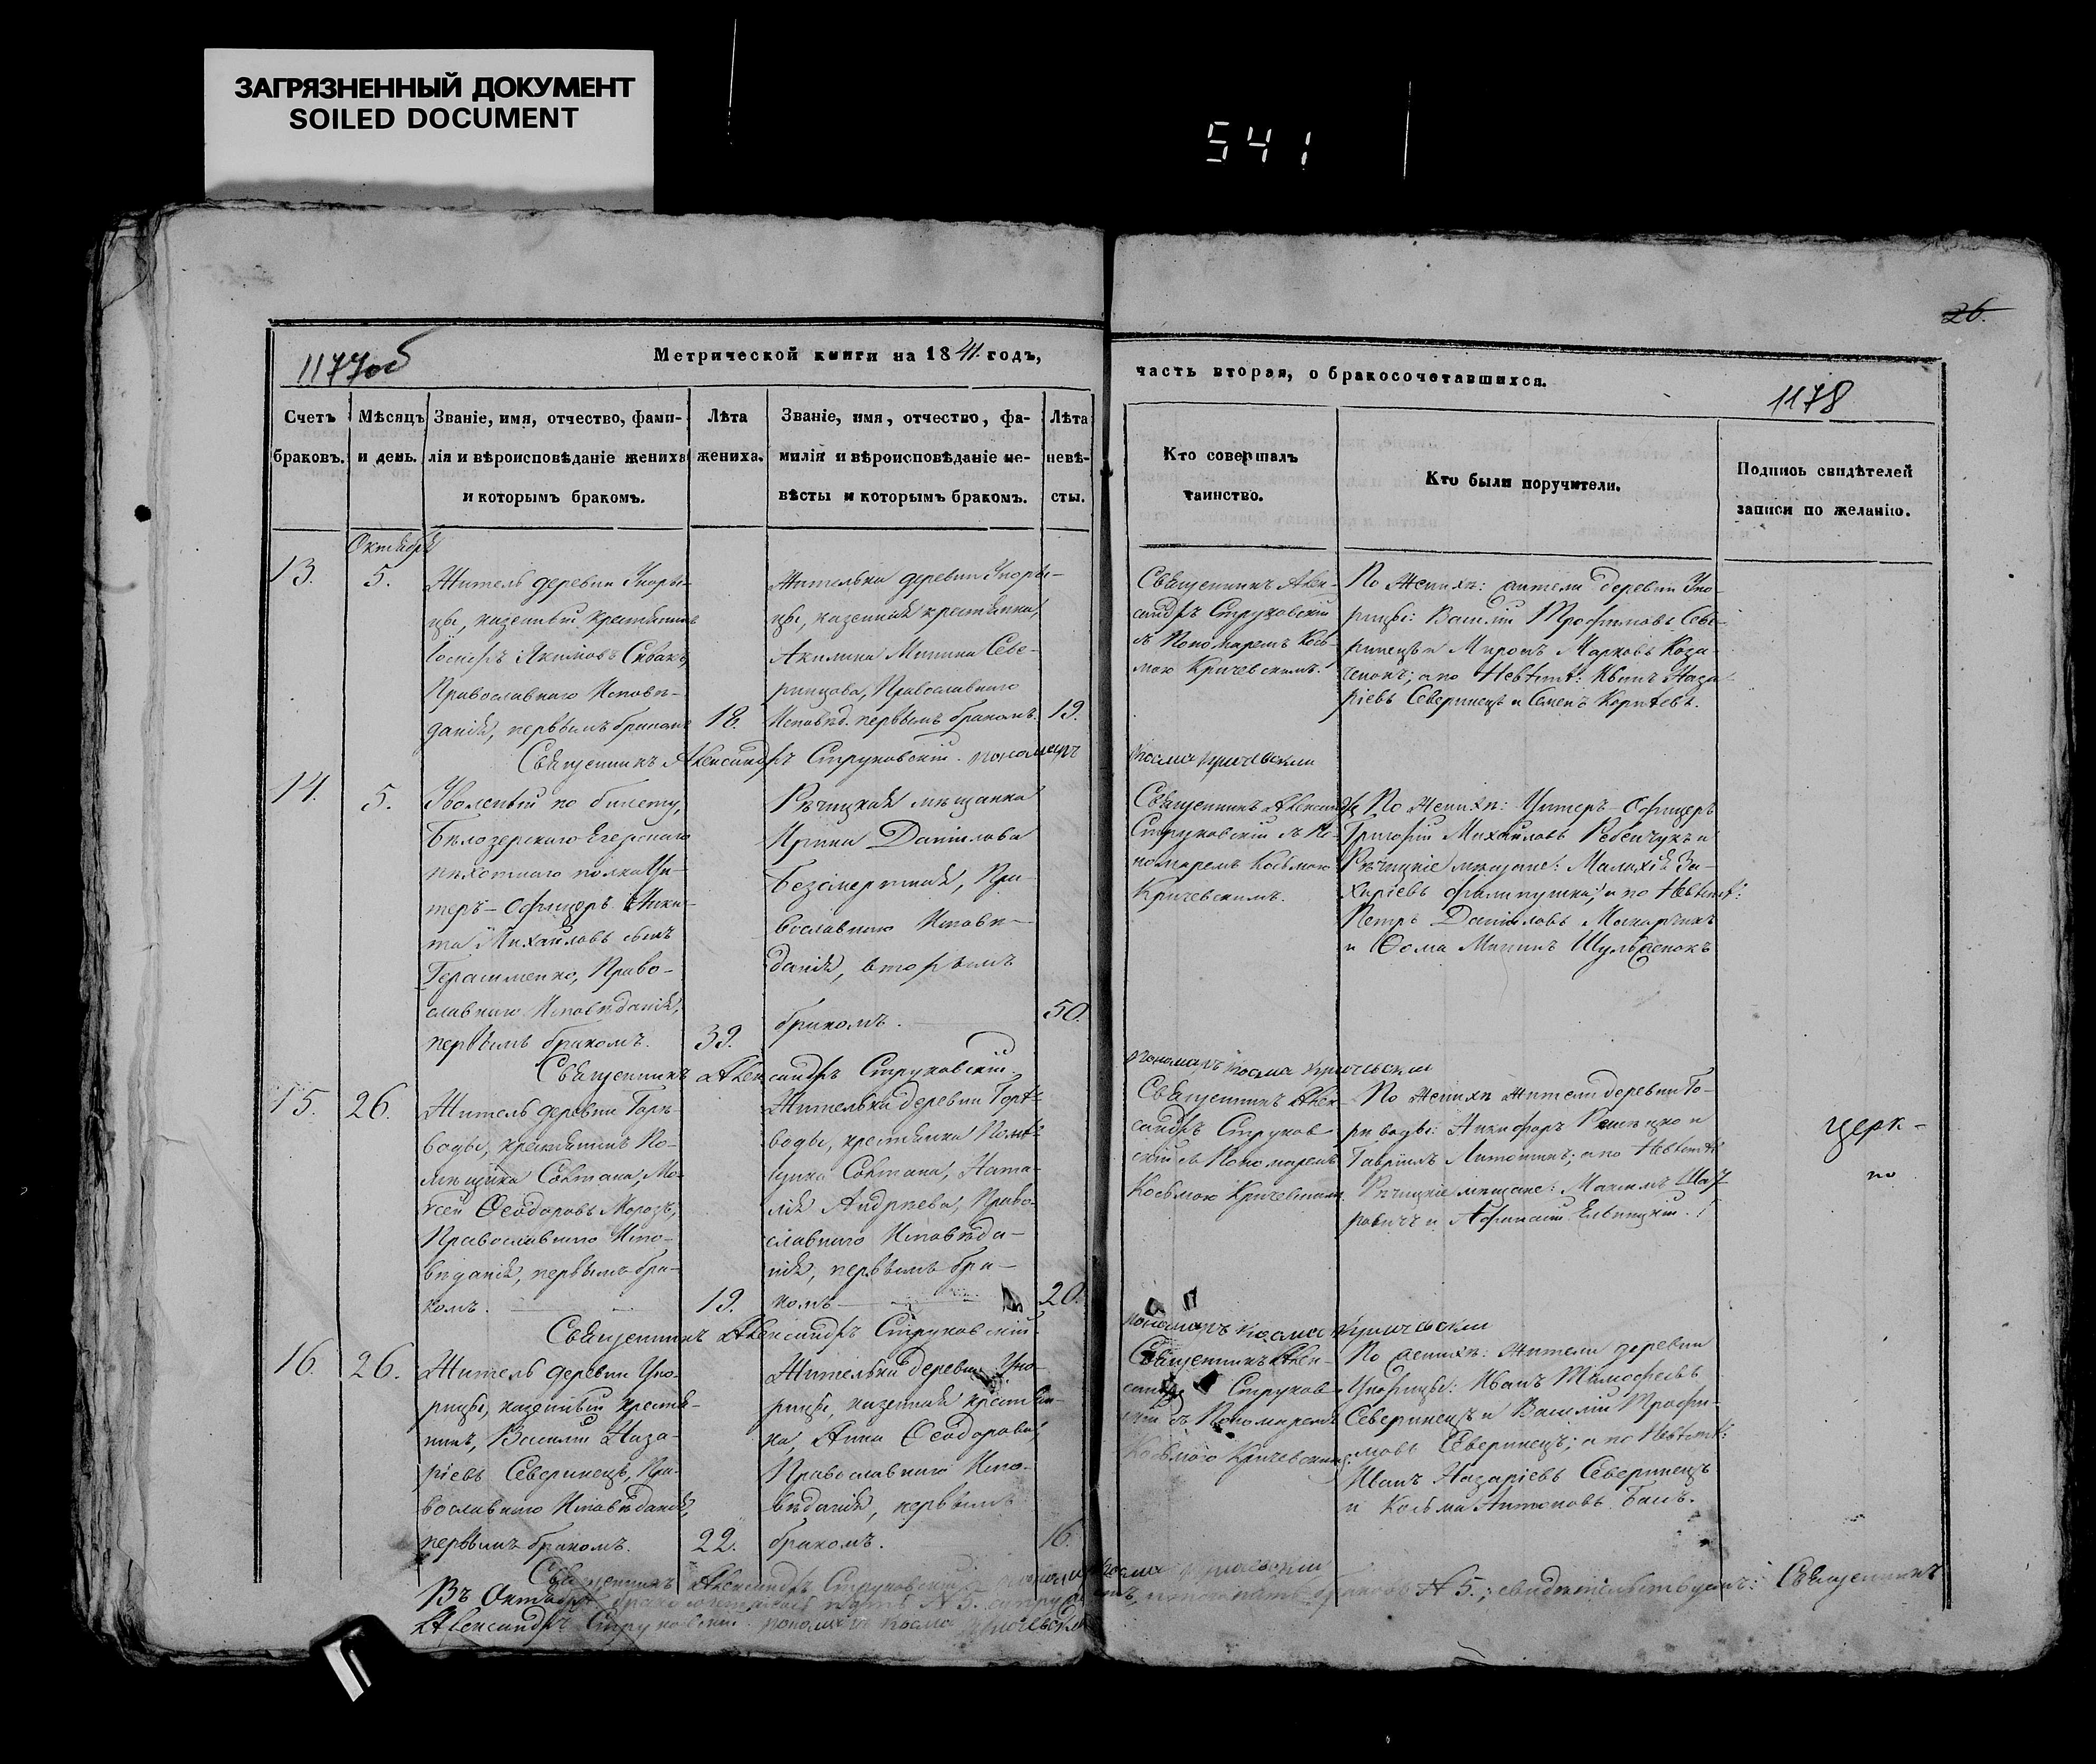 ЗАГРЯЗНЕННЫЙ ДОКУМЕНТ
SOILED DOCUMENT
541
26.
1177об
Метрической книги на 1841. годъ,
часть вторая, о бракосочетавшихся.
1178
Счетъ браковъ.
Мѣсяцъ и день.
Званіе, имя, отчество, фами-
лія и вѣроисповѣданіе жениха
и которымъ бракомъ.
Лѣта
жениха.
Званіе, имя, отчество, фа-
милія и вѣроисповѣданіе не-
вѣсты и которымъ бракомъ.
Лѣта
невѣ-
сты.
Кто совершалъ
таинство.
Кто были поручители.
Подпись свидѣтелей
записи по желанію.
Октябрь
13.
5.
Житель деревни Унори-
цы, казенный крестьянинъ
Іосифъ Якимовъ Сивакъ,
Православнаго Исповѣ-
данія, первымъ бракомъ
18.
Жителька деревни Унори-
цы, казенная крестьянка,
Акилина Минина Севе-
ринцова, Православнаго
Исповѣд. первымъ бракомъ.
19.
Священникъ Алек-
сандръ Струковскій
съ Пономаремъ Кось-
мою Кричевскимъ.
По женихѣ: жители деревни Уно-
рицы: Василій Трофимовъ Севе-
ринецъ и Миронъ Марковъ Каза-
ченокъ; а по невѣстѣ: Иванъ Наза-
ріевъ Северинецъ и Семенъ Корнѣевъ.
Священникъ Александръ Струковскій. пономарь
Косма Кричевскии
14.
5.
Уволенный по билету,
Бѣлозерскаго Егерскаго
пѣхотнаго полка Ун-
теръ-Офицеръ Ники-
та Михайловъ сынъ
Герасименко, Право-
славнаго Исповѣданія,
первымъ бракомъ.
39.
Рѣчицкая мѣщанка
Ирина Даніилова
Безсмертная, Пра-
вославнаго Исповѣ-
данія, вторымъ
бракомъ.
50.
Священникъ Александръ
Струковскій съ По-
номаремъ Косьмою
Кричевскимъ.
По женихѣ: Унтеръ-Офицеръ
Григорій Михайловъ Ребенчукъ и
Рѣчицкіе мѣщане: Малахія За-
харіевъ Филипушка; а по невѣстѣ:
Петръ Даніиловъ Макарчикъ
и Ѳома Мининъ
Священникъ Александръ Струковскій.
пономаръ Косма Кричевскии
15.
26.
Житель деревни Горѣ-
воды, крестьянинъ По-
мѣщика Совтана, Мо-
ѵсей Ѳеодоровъ Морозъ,
Православнаго Испо-
вѣданія, первымъ бра-
комъ.
19.
Жителька деревни Горѣ-
воды, крестьянка Помѣ-
щика Совтана, Ната-
лія Андреева, Право-
славнаго Исповѣда-
нія, первымъ бра-
комъ
20.
Священникъ Алек-
сандръ Струков-
скій съ Пономаремъ
Косьмою Кричевскимъ
По женихѣ жители деревни Го-
рѣводы: Никифоръ и
Гавріилъ Литошикъ; а по невѣстѣ
Рѣчицкіе мѣщане: Максимъ
и Афанасій Ельницкій.
церк-
по
Священникъ Александръ Струковскій.
пономаръ Косма Кричевскии
16.
26.
Житель деревни Уно-
рицы, казенный крестья-
нинъ, Василій Наза-
ріевъ Северинецъ, Пра-
вославнаго Исповѣданія,
первымъ бракомъ.
22.
Жителька деревни Уно-
рицы, казенная крестьян-
ка, Анна Ѳеодорова,
Православнаго Испо-
вѣданія, первымъ
бракомъ.
16.
Священникъ Алек-
сандръ Струков-
скій съ Пономаремъ
Косьмою Кричевскимъ.
По женихѣ: жители деревни
Унорицы: Иванъ Тимофеевъ
Северинецъ и Василій Трофи-
мовъ Северинецъ; а по невѣстѣ:
Иванъ Назаріевъ Северинецъ
и Косьма Антоновъ Банъ.
Священникъ Александръ Струковскій. пономарь Косма Кричевскии
Въ Октябрѣ бракосочетались пять № 5. свидѣтельствуемъ: Священникъ
Александръ Струковскій пономаръ Косма Кричевскии